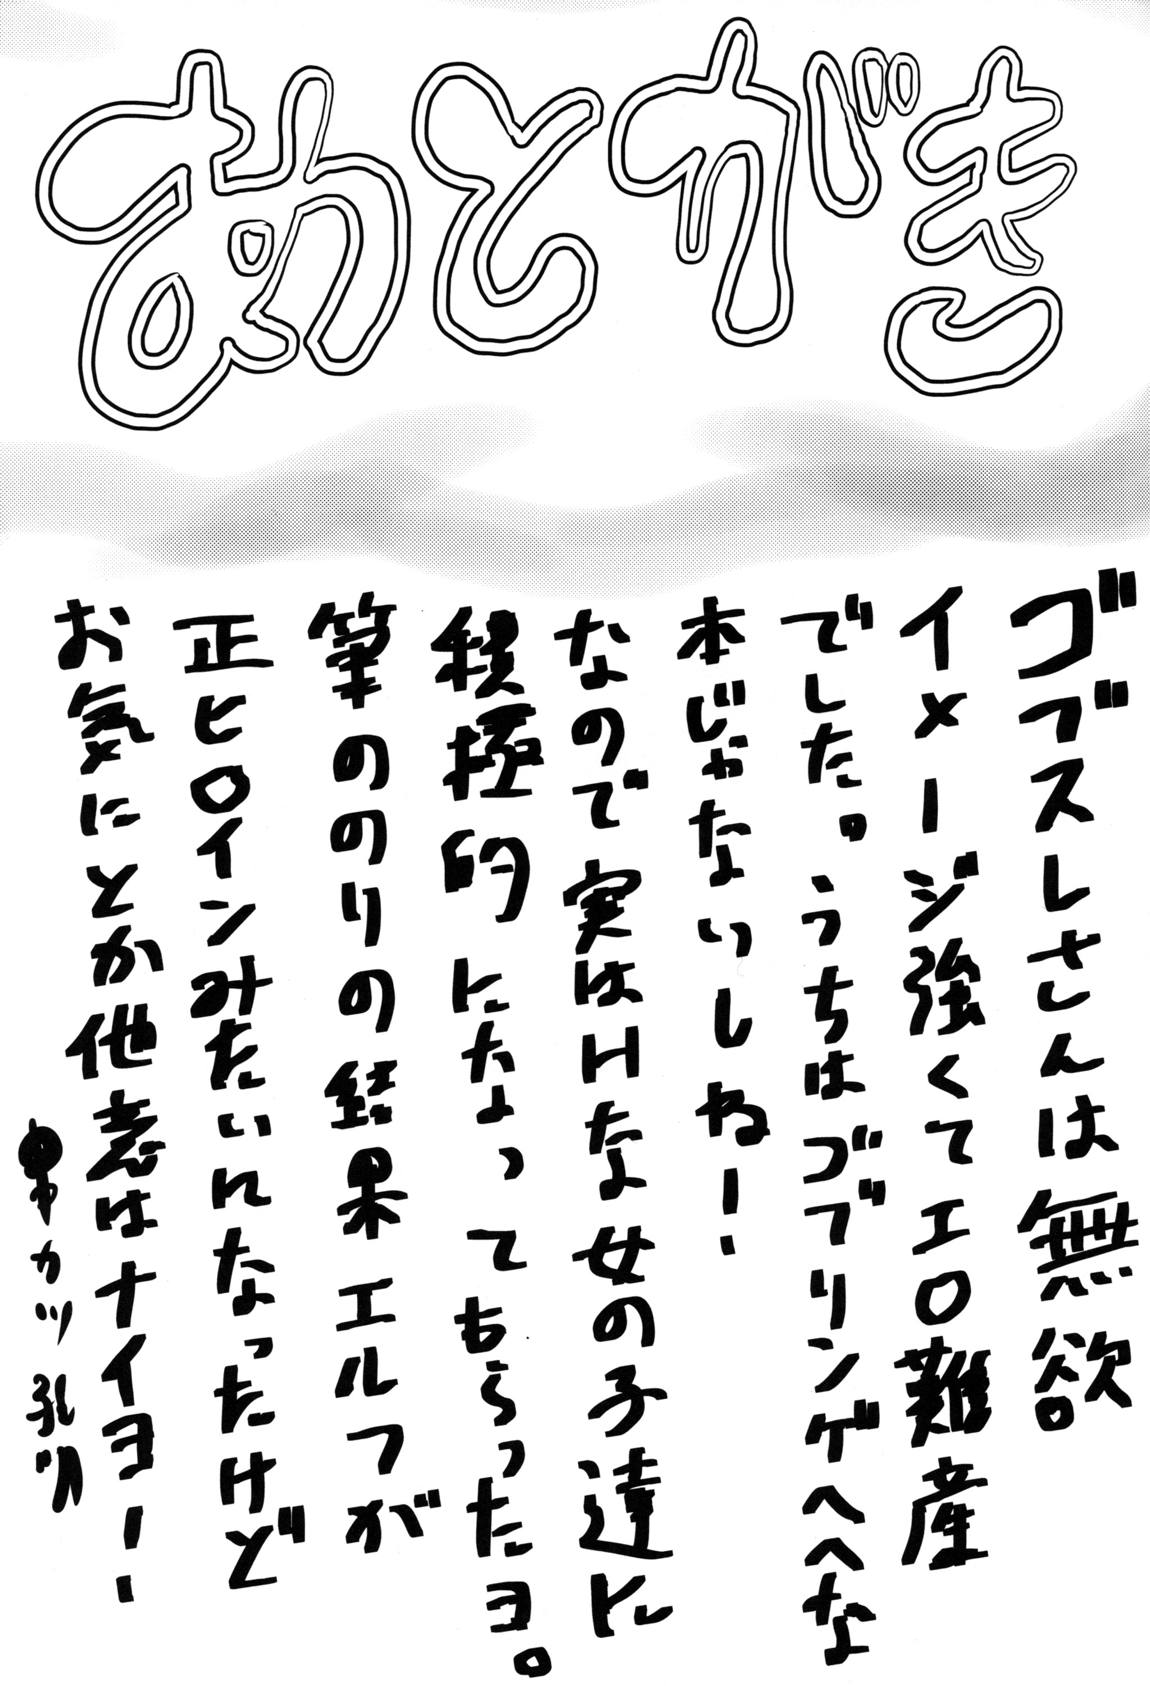 あとがき
ゴブスレさんは無欲
イメージ強くてエロ難産
でした。うちはゴブリンゲヘヘな
本じゃないしね！
なので実はHな女の子達に
積極的になってもらったヨ。
筆ののりの結果エルフが
正ヒロインみたいになったけど
お気にとか他意はナイヨー！